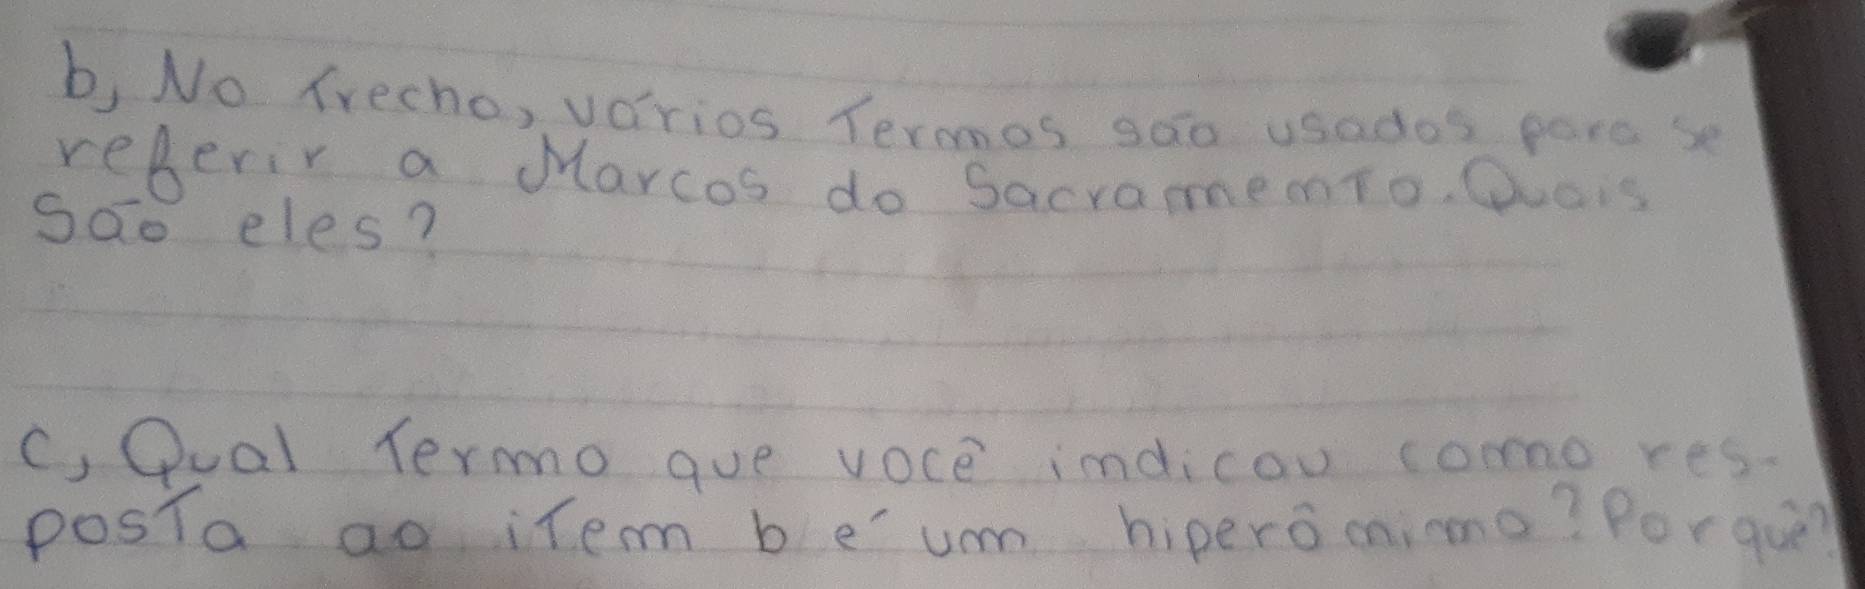 b, No Trecho, vários Termos são usados para se
referir a Marcos do Sacramento. Quais
São eles?
c, Qual Termo que você indicou como res-
posTa ao iTem b é um hiperônimo? Por quê?